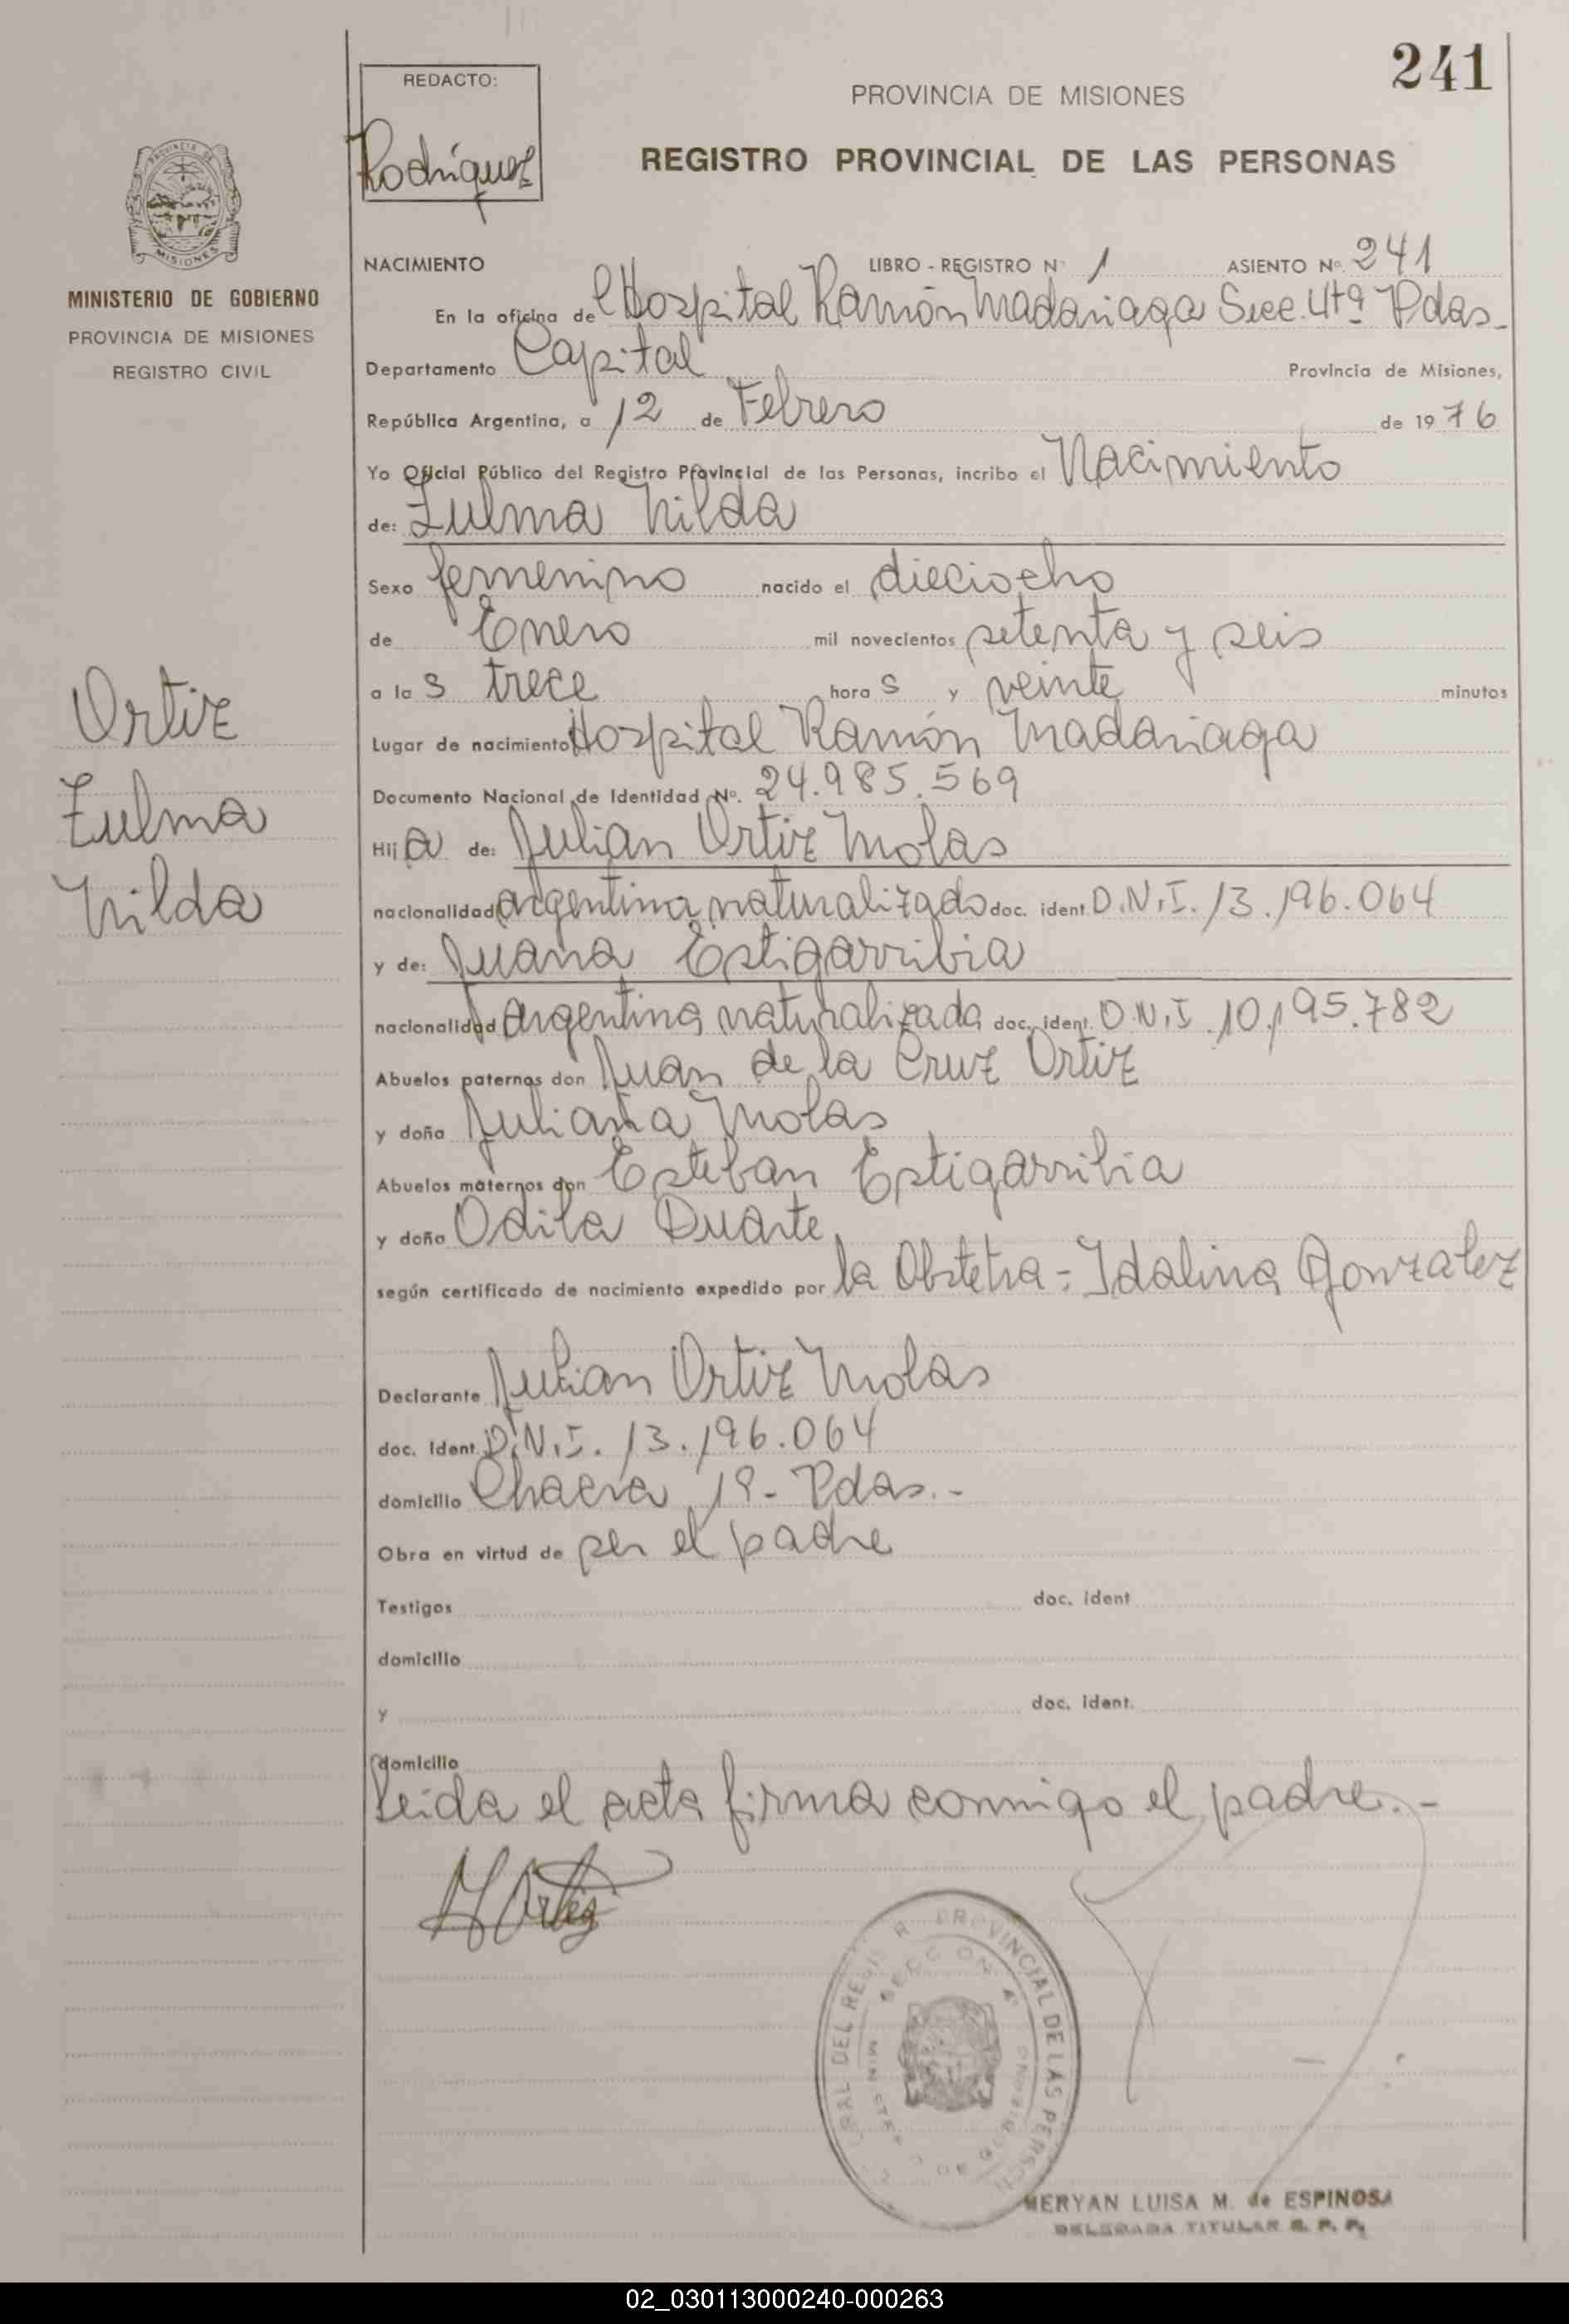 241
REDACTO:
Rodríguez
PROVINCIA DE MISIONES
REGISTRO PROVINCIAL DE LAS PERSONAS
PROVINCIA DE
MISIONES
MINISTERIO DE GOBIERNO
PROVINCIA DE MISIONES
REGISTRO CIVIL
NACIMIENTO LIBRO - REGISTRO Nº 1 ASIENTO Nº 241
En la oficina del Hospital Ramón Madariaga Secc. 4tª Pdas-
Departamento Capital Provincia de Misiones,
República Argentina, a 12 de Febrero de 1976
Yo Oficial Público del Registro Provincial de las Personas, incribo el Nacimiento
de: Zulma Nilda
Sexo femenino nacido el dieciocho
de Enero mil novecientos setenta y seis
a las trece horas y veinte minutos
Lugar de nacimiento Hospital Ramón Madariaga
Documento Nacional de Identidad Nº. 24.985.569
Hija de: Julian Ortiz Molas
nacionalidad argentina naturalizado doc. ident. D.N.I. 13.196.064
y de: Juana Estigarribia
nacionalidad argentina naturalizada doc. ident. D.N.I. 10.195.782
Abuelos paternos don Juan de la Cruz Ortiz
y doña Juliana Molas
Abuelos maternos don Esteban Estigarribia
y doña Odila Duarte
según certificado de nacimiento expedido por la Obstetra = Idalina Gonzalez
Declarante Julian Ortiz Molas
doc. Ident. D.N.I. 13.196.064
domicilio Chacra 19- Pdas.-
Obra en virtud de ser el padre
Testigos doc. ident
domicilio
y doc. ident.
domicilio
Leida el acta firma conmigo el padre.-
Ortiz
Zulma
Nilda
Ortiz
PROVINCIAL DE LAS
MERYAN LUISA M. de ESPINOSA
DELEGADA TITULAR R. P. P.
02_030113000240-000263